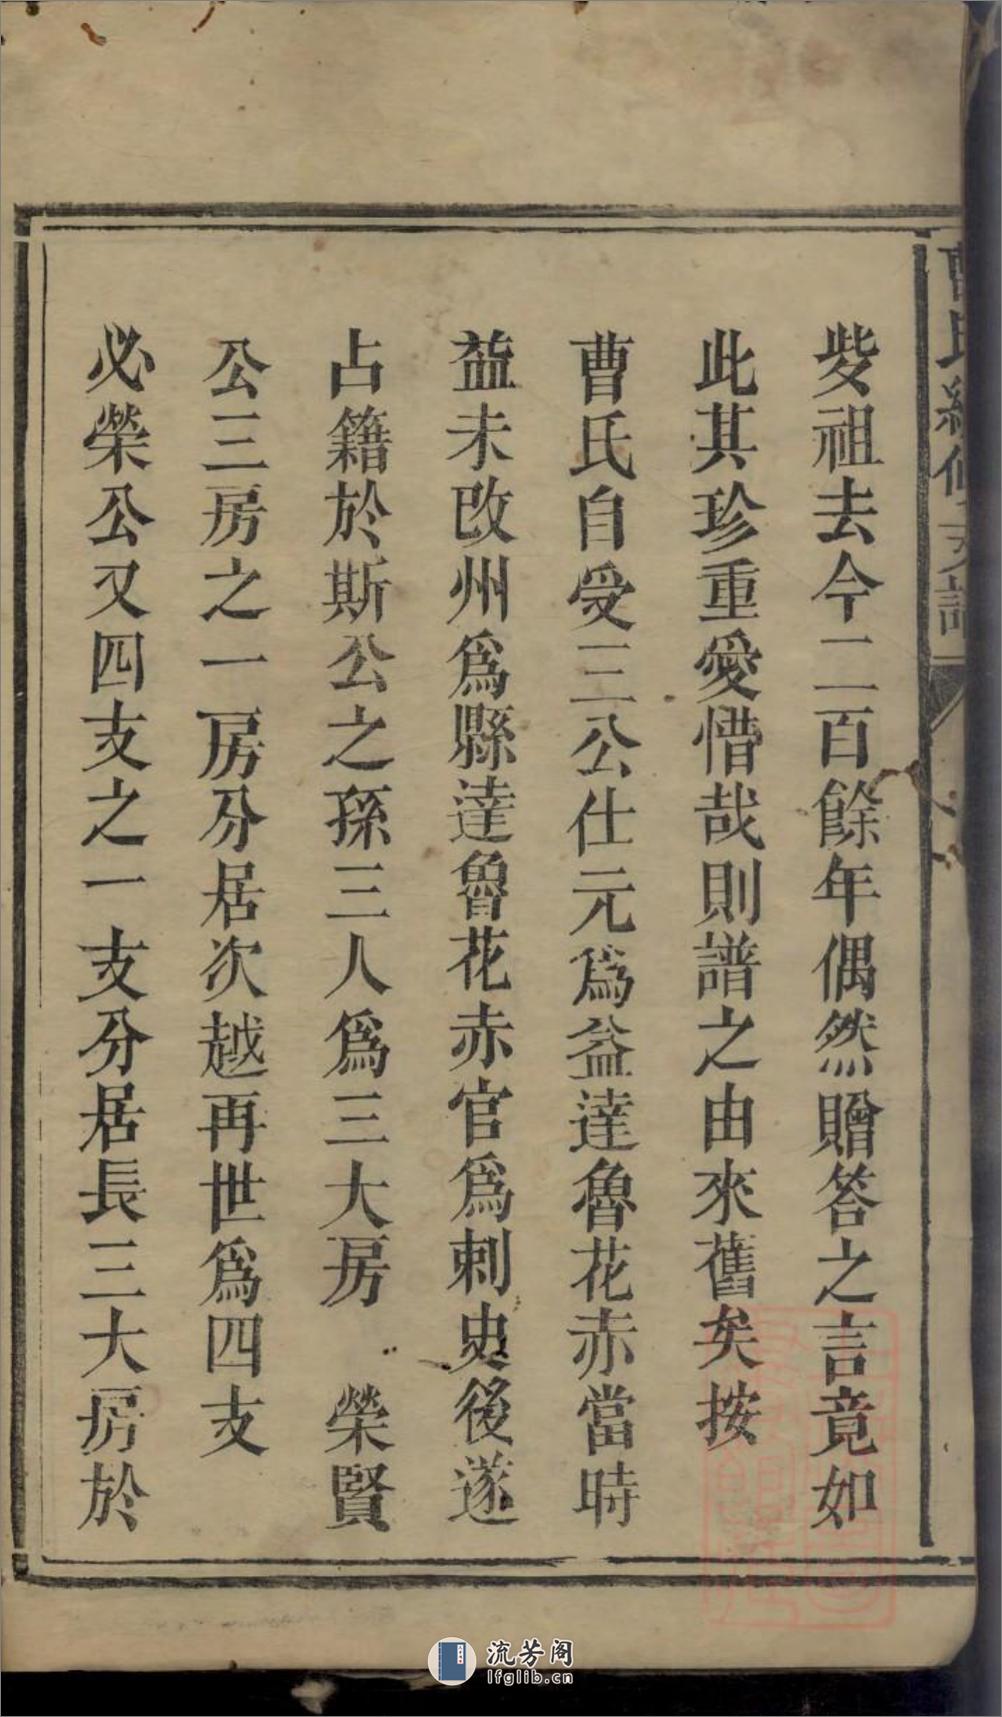 曹氏續修支譜
㛰祖去今二百餘年偶然贈答之言竟如
此其珍重愛惜哉則譜之由來舊矣按
曹氏自受三公仕元爲益達魯花赤當時
益未改州爲縣達魯花赤官爲刺史後遂
占籍於斯公之孫三人爲三大房　榮賢
公三房之一房分居次越再世爲四支
必榮公又四支之一支分居長三大房於
流芳阁
lfglib.cn